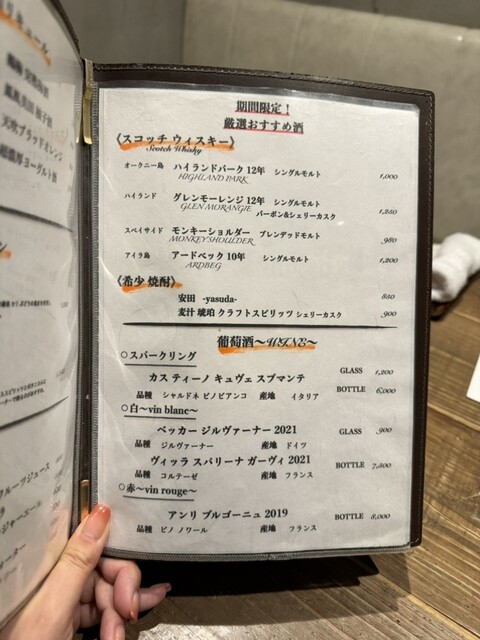 期間限定！
厳選おすすめ酒
《スコッチ ウィスキー》
Scotch Whisky
オークニー島 ハイランドパーク 12年 シングルモルト 1,000
HIGHLAND PARK
ハイランド グレンモーレンジ 12年 シングルモルト
GLEN MORANGIE バーボン&シェリーカスク 1,240
スペイサイド モンキーショルダー ブレンデッドモルト .980
MONKEYSHOULDER
アイラ島 アードベック 10年 シングルモルト 1,200
ARDBEG
《希少 焼酎》
安田 -yasuda- 840
麦汁 琥珀 クラフトスピリッツ シェリーカスク .900
葡萄酒〜WINE〜
○スパークリング
カス ティーノ キュヴェ スプマンテ GLASS 1,200
品種 シャルドネ ピノビアンコ 産地 イタリア BOTTLE 6,000
○白〜vin blanc〜
ベッカー ジルヴァーナー 2021 GLASS .900
品種 ジルヴァーナー 産地 ドイツ
ヴィッラ スパリーナ ガーヴィ 2021 BOTTLE 7,500
品種 コルテーゼ 産地 フランス
○赤〜vin rouge〜
アンリ ブルゴーニュ 2019 BOTTLE 8,000
品種 ピノ ノワール 産地 フランス